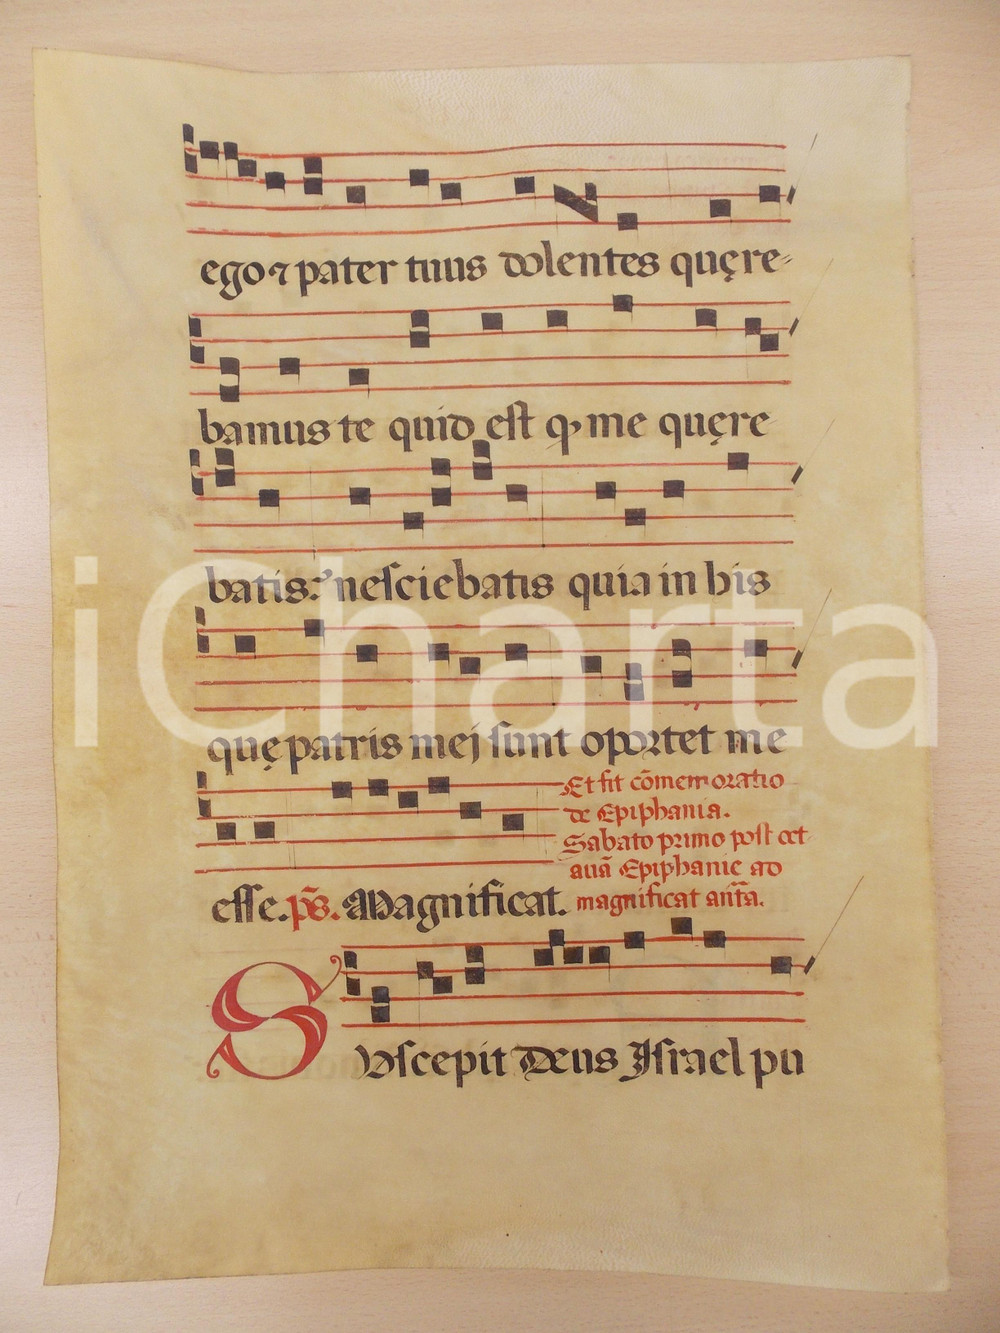 ego ⁊ pater tuus dolentes quęre-
bamus te quid est ꝙ me quęre
batis: nesciebatis quia in his
quę patris mej sunt oportet me
Et fit cõmemoratio
de Epiphania.
Sabato primo post oct
auã Epiphanie ad
esse. ps̃. Magnificat. magnificat ant̃a.
SVscepit Deus Israel pu
iCharta